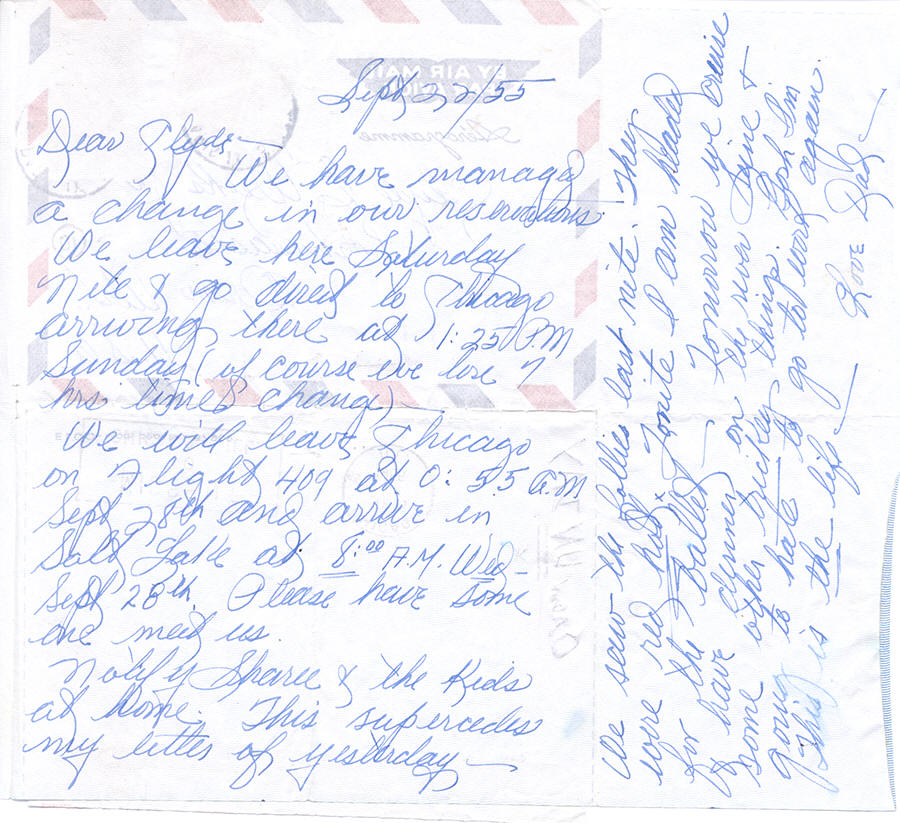 Sept 22/55
Dear Clyde—
We have managed
a change in our reservations
We leave here Saturday
Nite & go direct to Chicago
arriving there at 1:25 P.M
Sunday (of course we lose 7
hrs time & change)—
We will leave Chicago
on Flight 409 at 0:55 A.M
Sept 28th and arrive in
Salt Lake at 8:00 A.M. Wed—
Sept 28th. Please have some
one meet us.
Notify Sharee & the Kids
at home. This supercedes
my letter of yesterday—
We saw the Follies last nite. They
were red hot. Tonite I am headed
for the Ballet— Tomorrow we cruise
& have dinner on the river Seine &
some other trickey things. Gosh I'm
going to hate to go to work again.
This is the life—
Love Dad—
BY AIR MAIL
PAR AVION
Aerogramme